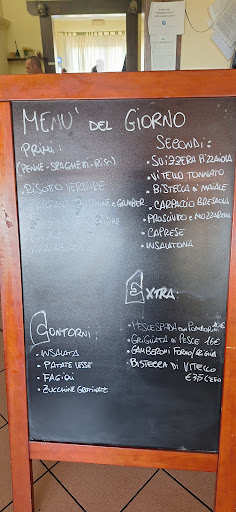 MENU' DEL GIORNO
PRIMI:
(PENNE-SPAGHETTI-RISO)
• RISOTTO VERDURE
GAMBER
SECONDI:
• SVIZZERA PIZZAIOLA
• VITELLO TONNATO
• BISTECCA DI MAIALE
• CARPACCIO BRESAOLA
• PROSCIUTTO E MOZZARELLA
• CAPRESE
• INSALATONA
CONTORNI:
• INSALATA
• PATATE LESSE
• FAGIOLI
• ZUCCHINE GRATINATE
EXTRA:
• PESCE SPADA CON POMODORINI
• GRIGLIATA DI PESCE 16€
• GAMBERONI FORNO/GRIGLIA
• BISTECCA DI VITELLO
€3,5 L'ETTO